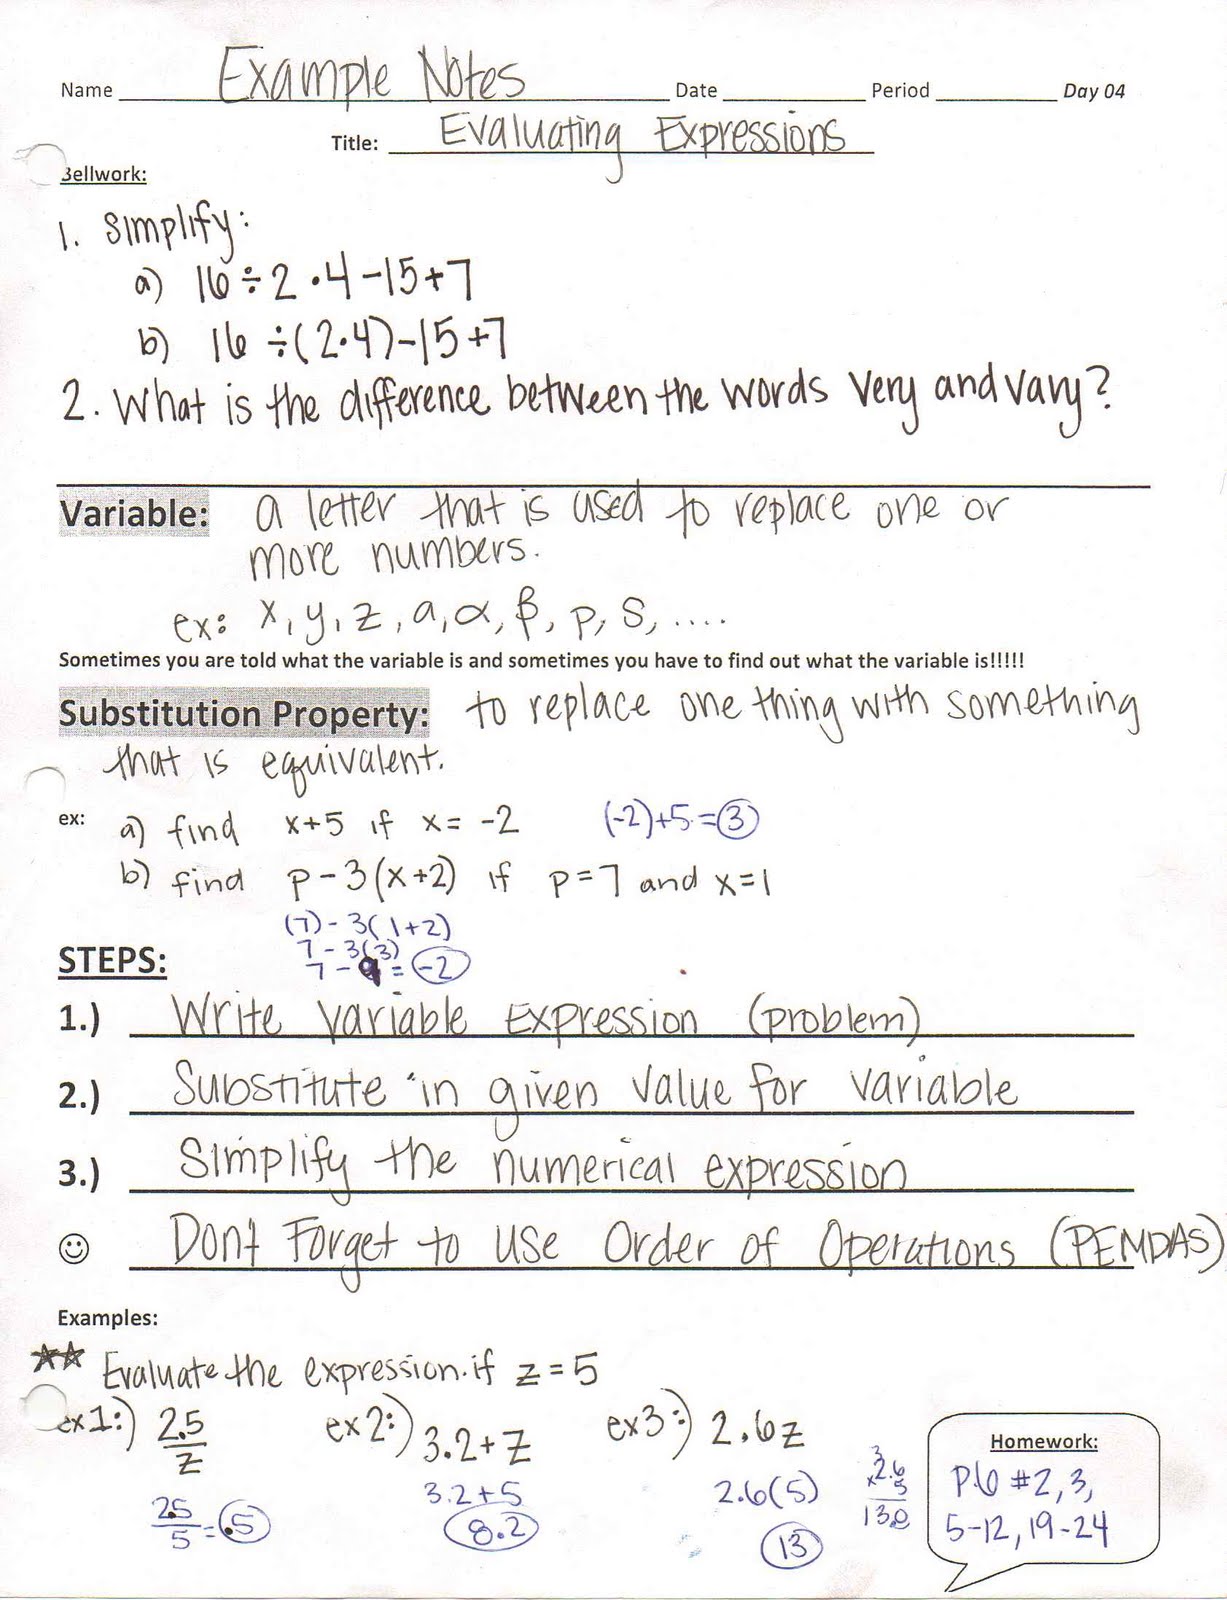 Name Example Notes Date Period Day 04
Title: Evaluating Expressions
Bellwork:
1. Simplify:
a) 16 ÷ 2 · 4 - 15 + 7
b) 16 ÷ (2·4) - 15 + 7
2. What is the difference between the words very and vary?
Variable: a letter that is used to replace one or
more numbers.
ex: x, y, z, a, α, β, p, s, ....
Sometimes you are told what the variable is and sometimes you have to find out what the variable is!!!!!
Substitution Property: to replace one thing with something
that is equivalent.
ex: a) find x+5 if x= -2 (-2)+5 = 3
b) find p - 3(x+2) if p=7 and x=1
(7) - 3(1+2)
7 - 3(3)
7 - 9 = -2
STEPS:
1.) Write variable expression (problem)
2.) Substitute in given value for variable
3.) Simplify the numerical expression
☺ Don't Forget to use Order of Operations (PEMDAS)
Examples:
★★ Evaluate the expression if z = 5
ex1:) 2.5/z ex2:) 3.2 + z ex3:) 2.6z
2.5/5 = .5
3.2 + 5
8.2
2.6(5)
13
3
2.6
x 5
13.0
Homework:
P.6 #2, 3,
5-12, 19-24